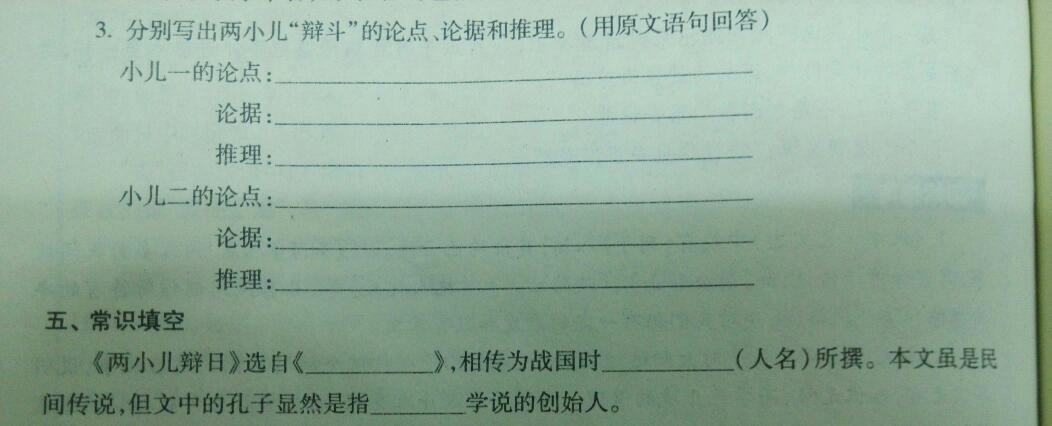 3. 分别写出两小儿“辩斗”的论点、论据和推理。(用原文语句回答)
小儿一的论点:
论据:
推理:
小儿二的论点:
论据:
推理:
五、常识填空
《两小儿辩日》选自《 》,相传为战国时 (人名)所撰。本文虽是民
间传说,但文中的孔子显然是指 学说的创始人。